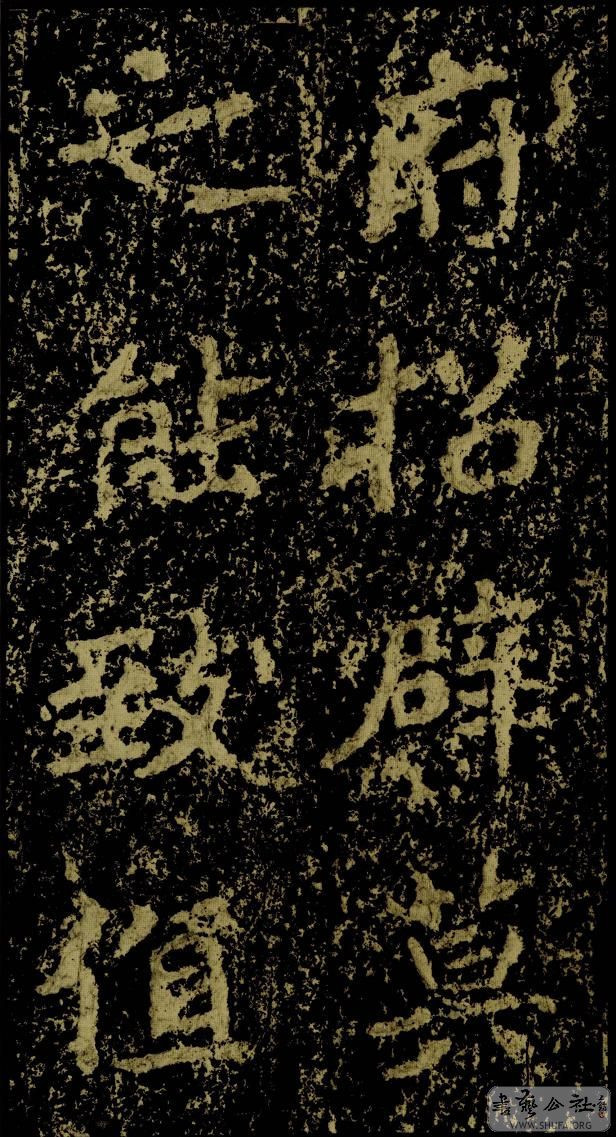 府招辟莫
之能致值
書藝公社
WWW.SHUFA.ORG